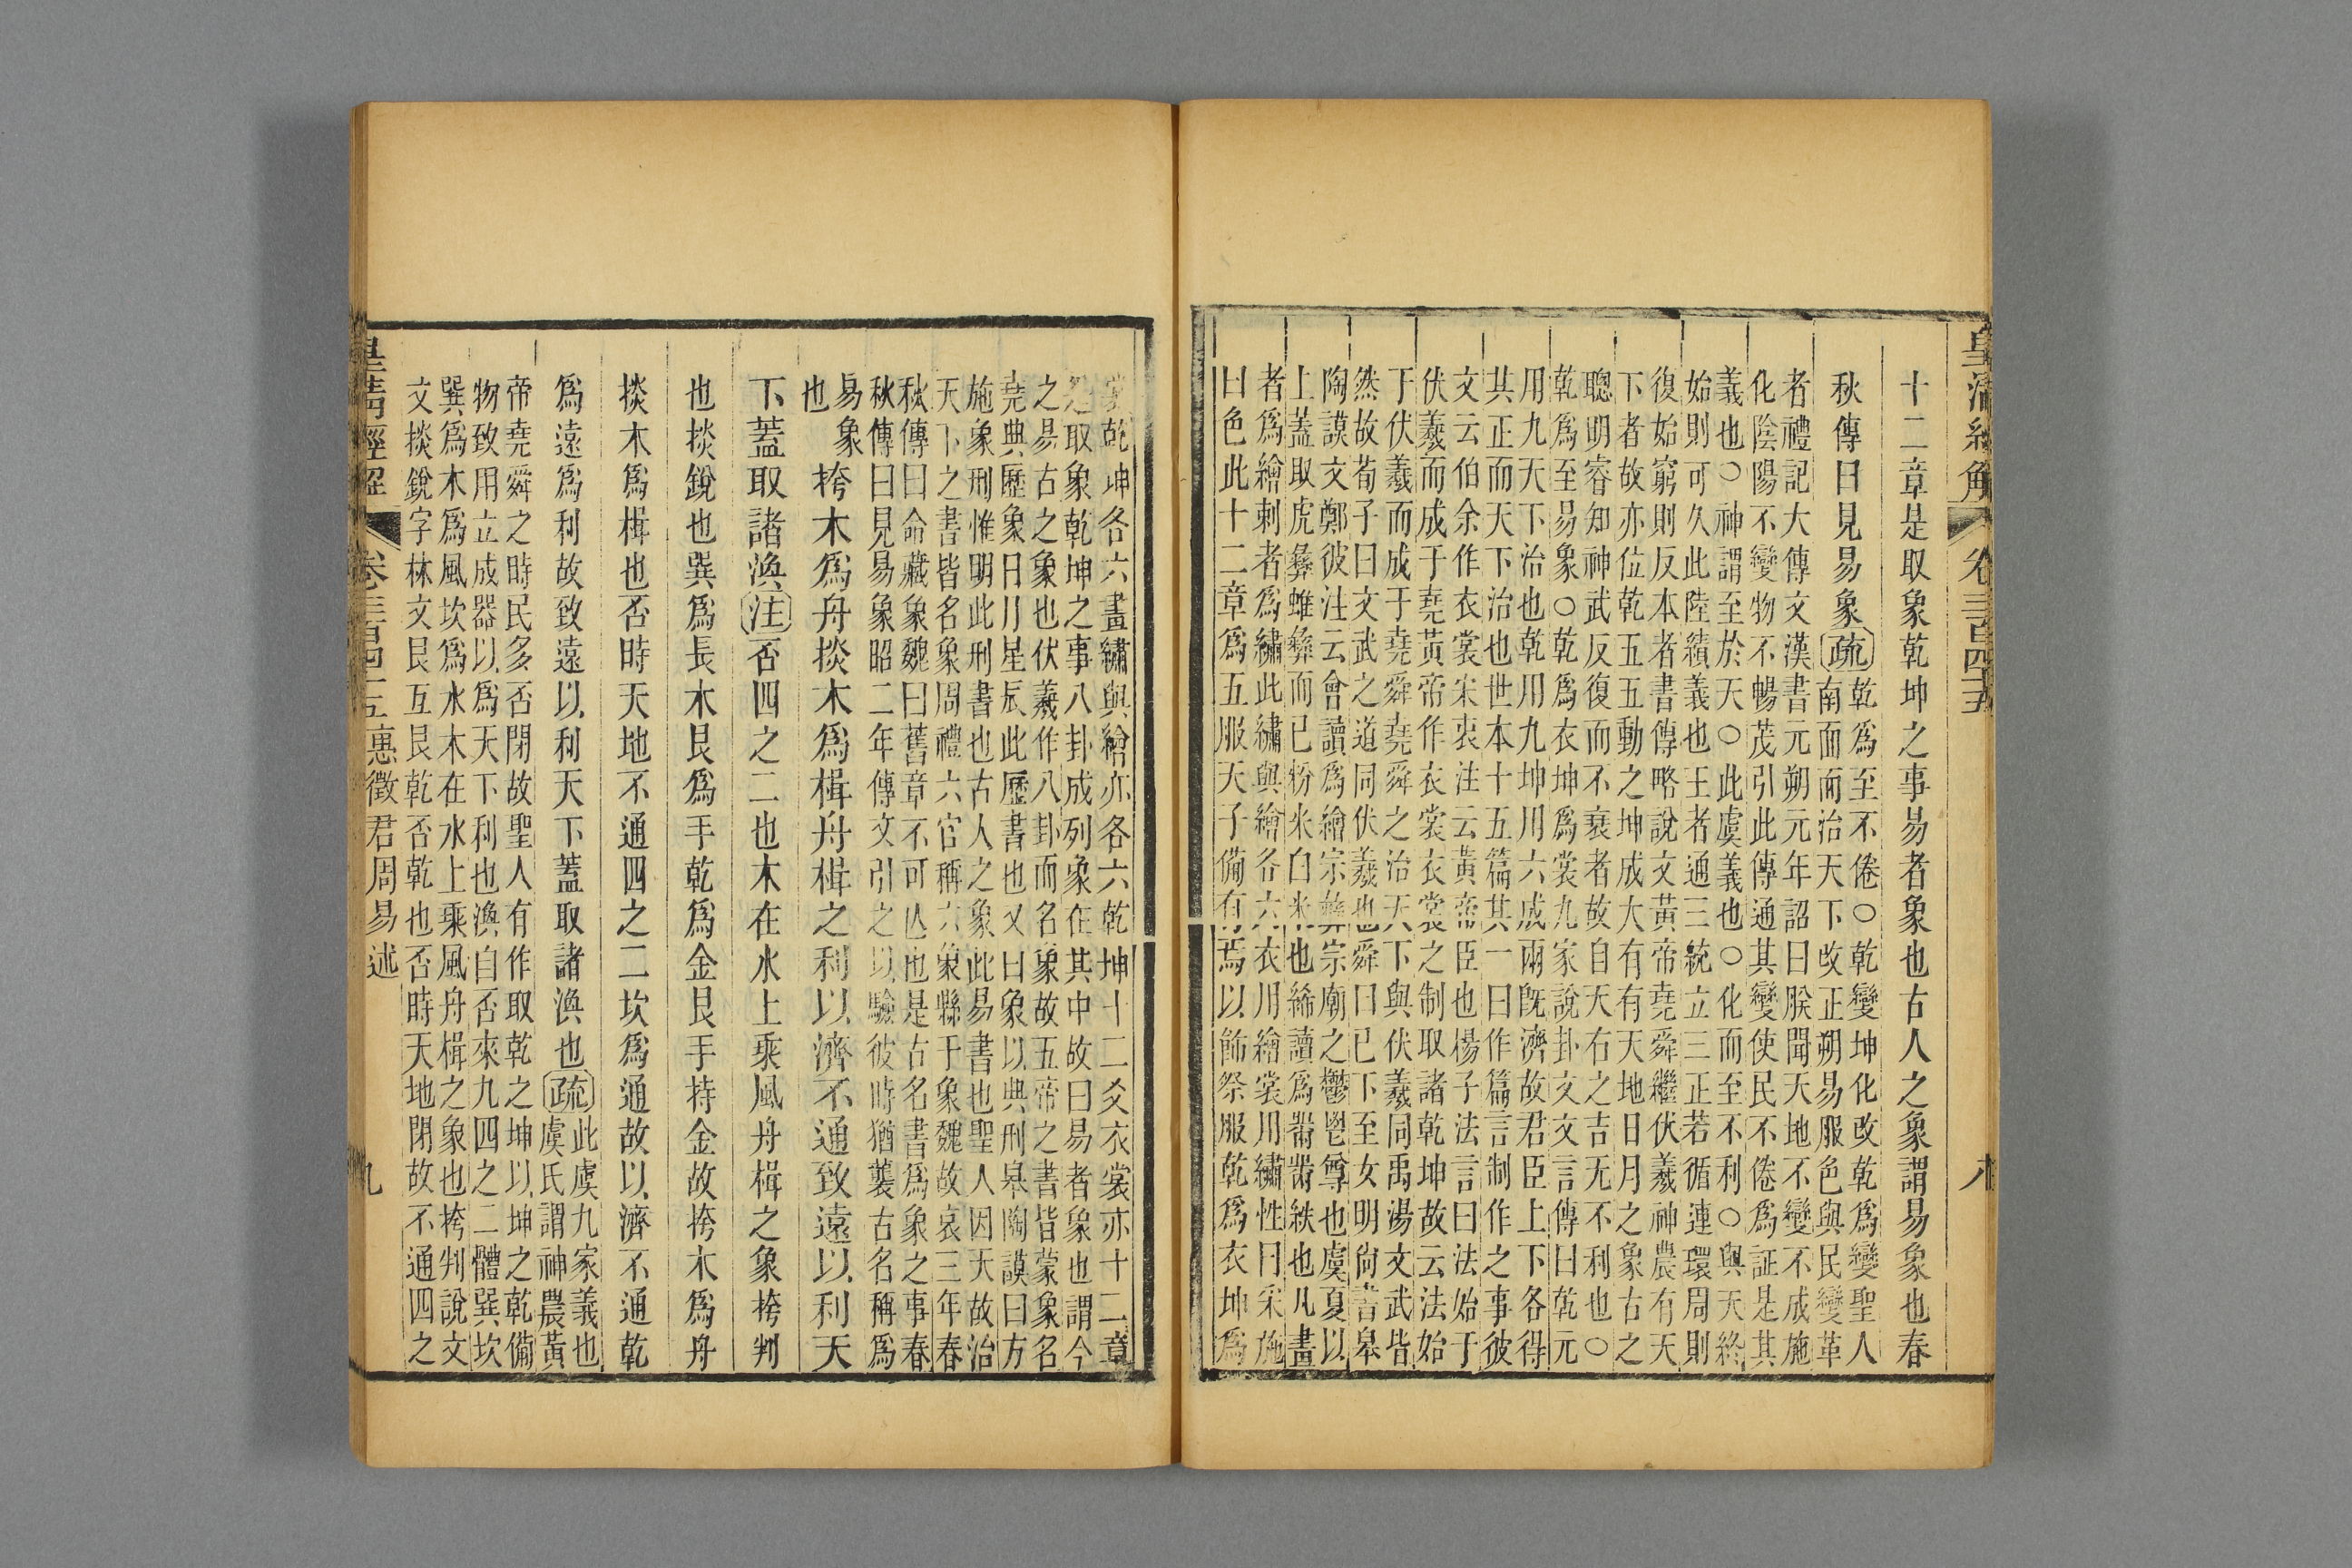 皇清經解 卷三百四十五 八
十二章是取象乾坤之事易者象也古人之象謂易象也春
秋傳曰見易象疏
乾爲至不倦○乾變坤化改乾爲變聖人
南面而治天下改正朔易服色與民變革
者禮記大傳文漢書元朔元年詔曰朕聞天地不變不成施
化陰陽不變物不暢茂引此傳通其變使民不倦爲証是其
義也○神謂至於天○此虞義也○化而至不利○與天終
始則可久此陸績義也王者通三統立三正若循連環周則
復始窮則反本者書傳略說文黃帝堯舜繼伏羲神農有天
下者故亦位乾五五動之坤成大有有天地日月之象古之
聰明睿知神武反復而不衰者故自天右之吉无不利也○
乾爲至易象○乾爲衣坤爲裳九家說卦文文言傳曰乾元
用九天下治也乾用九坤用六成兩既濟故君臣上下各得
其正而天下治也世本十五篇其一曰作篇言制作之事彼
文云伯余作衣裳宋衷注云黃帝臣也楊子法言曰法始于
伏羲而成于堯黃帝作衣裳衣裳之制取諸乾坤故云法始
于伏羲而成于堯舜堯舜之治天下與伏羲同禹湯文武皆
然故荀子曰文武之道同伏羲也舜曰已下至女明尚書皋
陶謨文鄭彼注云會讀爲繪宗彝宗廟之鬱鬯尊也虞夏以
上蓋取虎彝蜼彝而已粉米白米也絺讀爲黹黹紩也凡畫
者爲繪刺者爲繡此繡與繪各六衣用繪裳用繡性曰采施
曰色此十二章爲五服天子備有焉以飾祭服乾爲衣坤爲
裳乾坤各六畫繡與繪亦各六乾坤十二爻衣裳亦十二章
是取象乾坤之事八卦成列象在其中故曰易者象也謂今
之易古之象也伏羲作八卦而名象故五帝之書皆蒙象名
堯典歷象日月星辰此歷書也又曰象以典刑皋陶謨曰方
施象刑惟明此刑書也古人之象此易書也聖人因天故治
天下之書皆名象周禮六官稱六象縣于象魏故哀三年春
秋傳曰命藏象魏曰舊章不可亾也是古名書爲象之事春
秋傳曰見易象昭二年傳文引之以驗彼時猶襲古名稱爲
易象
也
挎木爲舟掞木爲楫舟楫之利以濟不通致遠以利天
下蓋取諸渙注否四之二也木在水上乘風舟楫之象挎判
也掞銳也巽爲長木艮爲手乾爲金艮手持金故挎木爲舟
掞木爲楫也否時天地不通四之二坎爲通故以濟不通乾
爲遠爲利故致遠以利天下蓋取諸渙也疏
此虞九家義也
虞氏謂神農黃
帝堯舜之時民多否閉故聖人有作取乾之坤以坤之乾備
物致用立成器以爲天下利也渙自否來九四之二體巽坎
巽爲木爲風坎爲水木在水上乘風舟楫之象也挎判說文
文掞銳字林文艮互艮乾否乾也否時天地閉故不通四之
皇清經解 卷三百四十五 惠徵君周易述 九